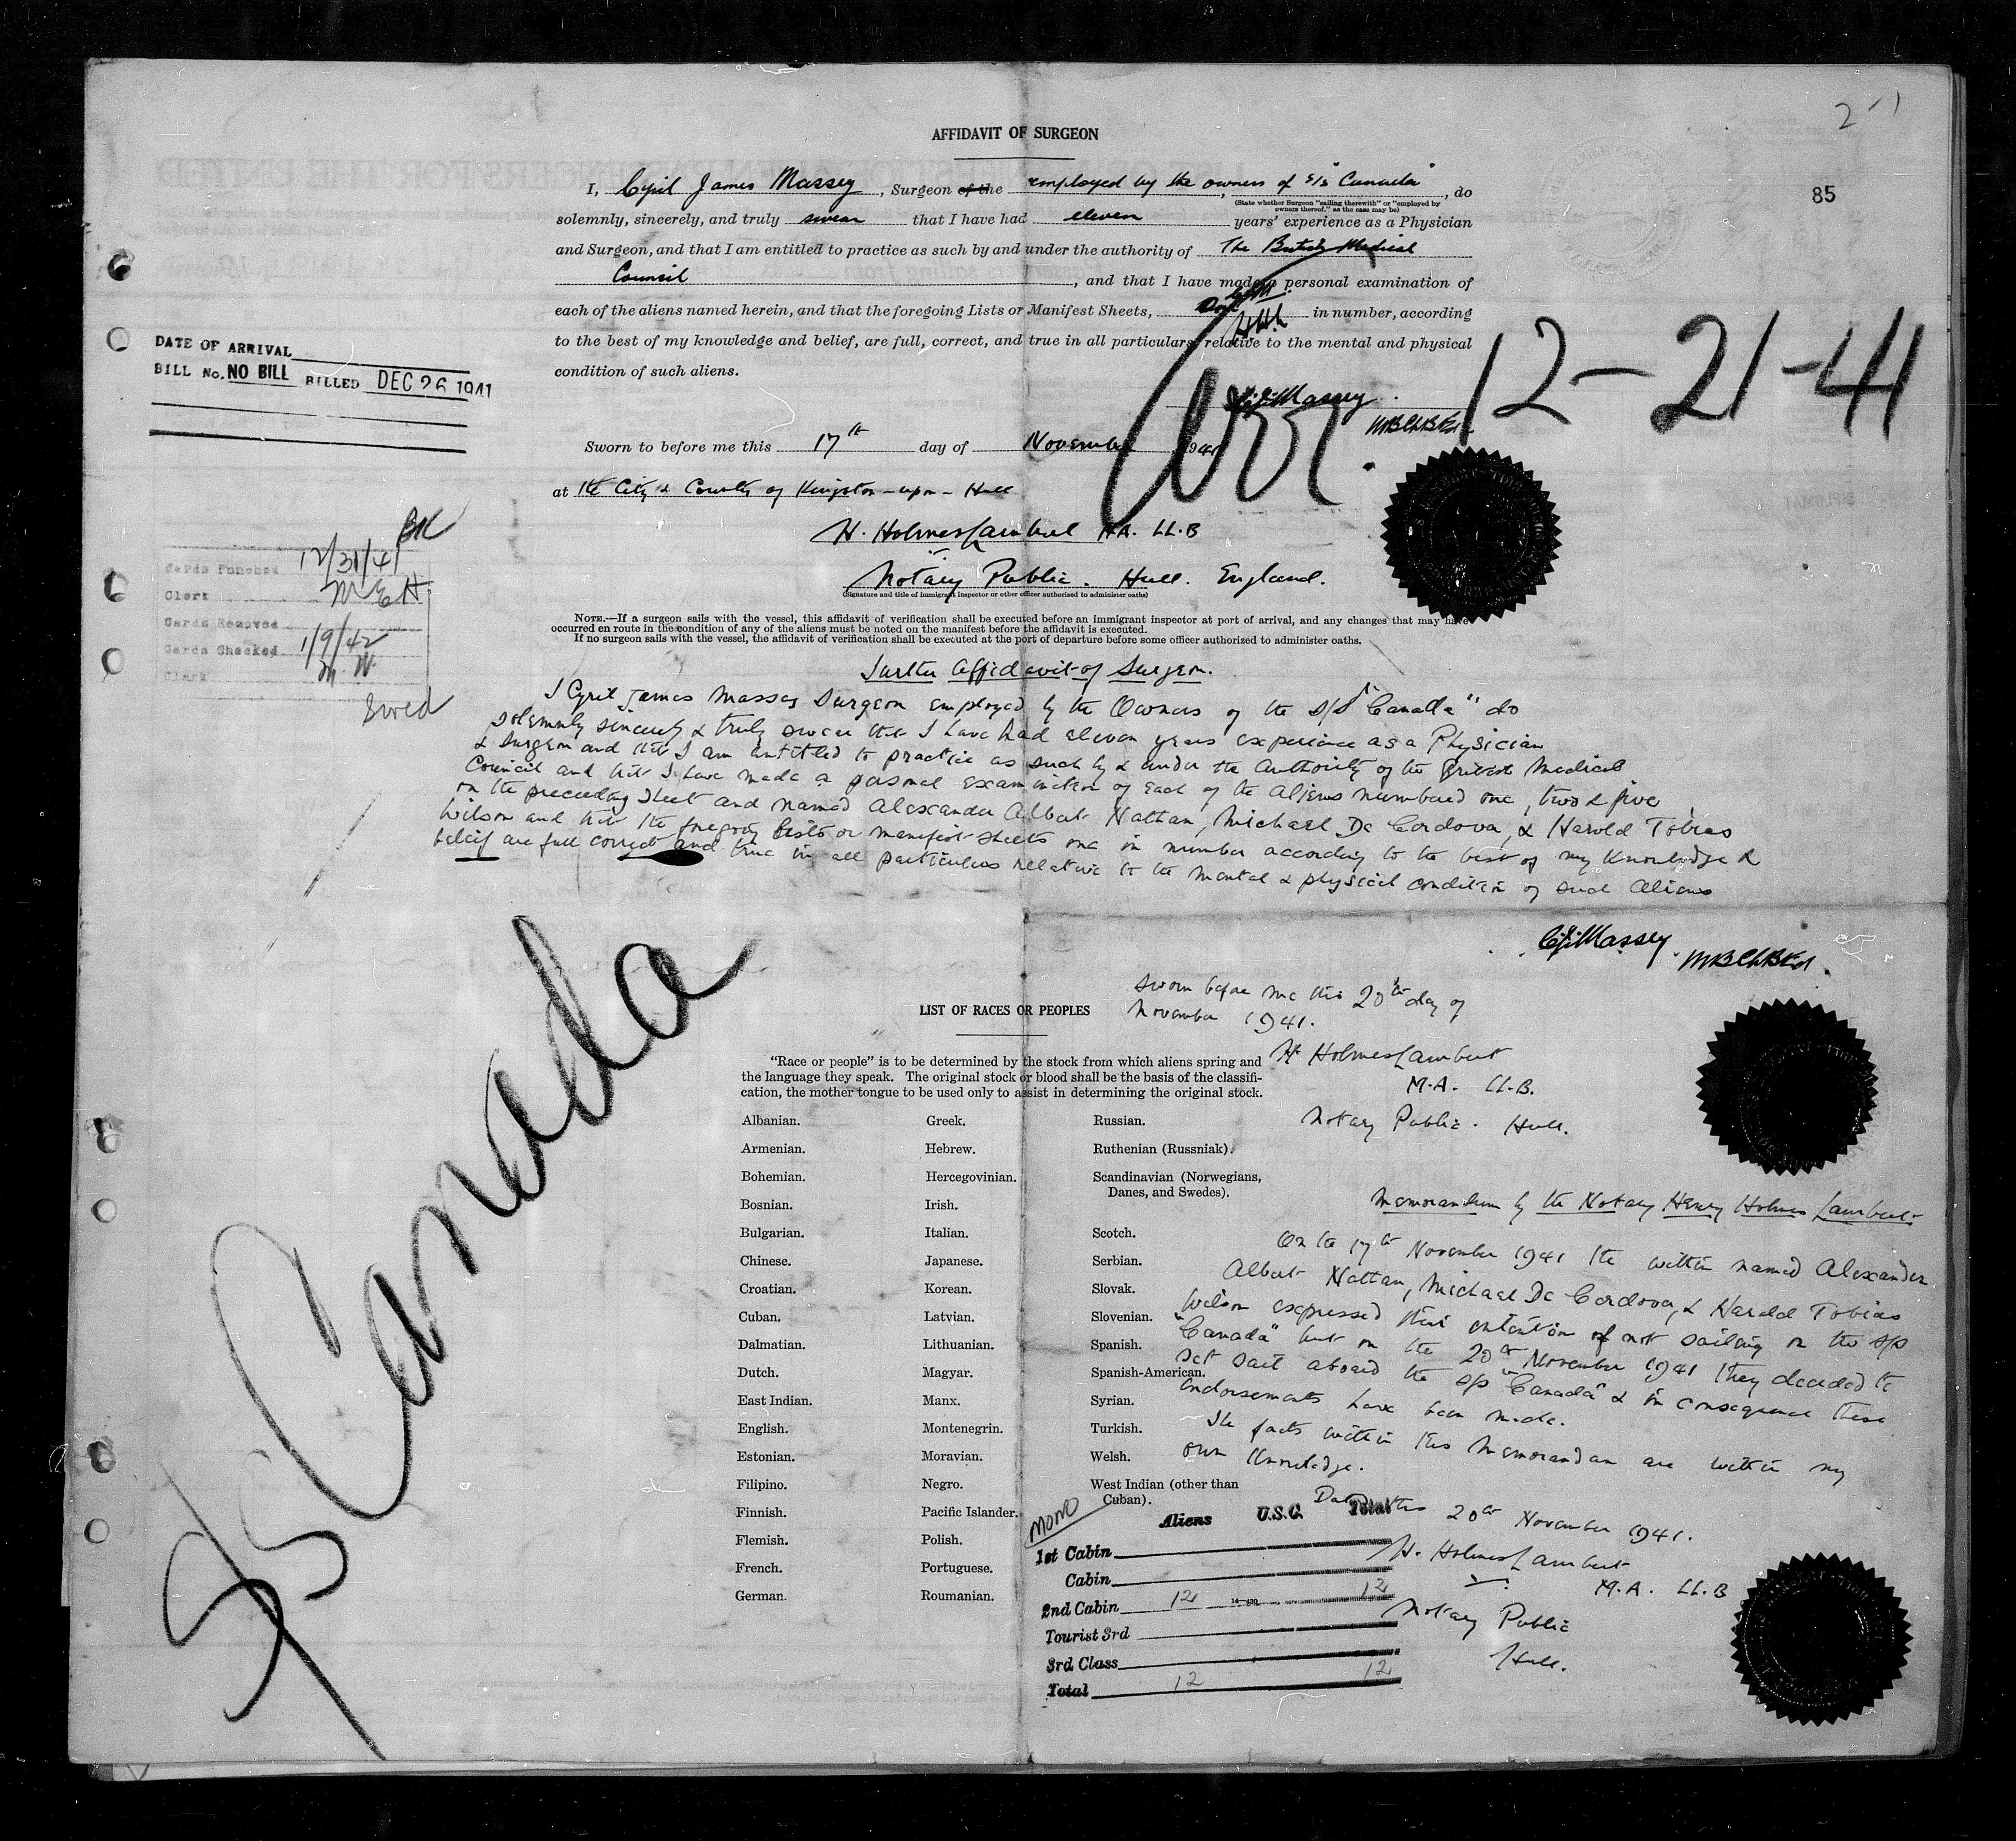 AFFIDAVIT OF SURGEON
85
I, Cyril James Massey, Surgeon of the employed by the owners of s/s "Canada", do
(State whether Surgeon "sailing therewith" or "employed by
owners thereof," as the case may be)
solemnly, sincerely, and truly swear that I have had eleven years' experience as a Physician
and Surgeon, and that I am entitled to practice as such by and under the authority of The British Medical
Council, and that I have made a personal examination of
each of the aliens named herein, and that the foregoing Lists or Manifest Sheets, in number, according
to the best of my knowledge and belief, are full, correct, and true in all particulars relative to the mental and physical
condition of such aliens.
C.J. Massey
12-21-41
DATE OF ARRIVAL
BILL No. NO BILL BILLED DEC 26 1941
Sworn to before me this 17th day of November 1941
at the City & County of Kingston-upon-Hull
H. Holmes Lambert M.A. LL.B
Notary Public. Hull. England.
(Signature and title of immigrant inspector or other officer authorized to administer oaths)
Cards Punched 12/31/41
Clerk
Cards Removed
Cards Checked 1/9/42
Clerk M.W.
NOTE.—If a surgeon sails with the vessel, this affidavit of verification shall be executed before an immigrant inspector at port of arrival, and any changes that may have
occurred en route in the condition of any of the aliens must be noted on the manifest before the affidavit is executed.
If no surgeon sails with the vessel, the affidavit of verification shall be executed at the port of departure before some officer authorized to administer oaths.
Further Affidavit of Surgeon.
I Cyril James Massey Surgeon employed by the Owners of the S/S "Canada" do
solemnly sincerely & truly swear that I have had eleven years experience as a Physician
& Surgeon and that I am entitled to practice as such by & under the authority of the British Medical
Council and that I have made a personal examination of each of the aliens numbered one, two & five
on the preceding sheet and named Alexander Albert Nathan, Michael De Cordova, & Harold Tobias
Wilson and that the foregoing Lists or manifest sheets one in number according to the best of my knowledge &
belief are full correct and true in all particulars relative to the mental & physical condition of such Aliens
C.J. Massey
Sworn before me this 20th day of
November 1941.
H Holmes Lambert
M.A. LL.B.
Notary Public. Hull.
SS Canada
LIST OF RACES OR PEOPLES
"Race or people" is to be determined by the stock from which aliens spring and
the language they speak. The original stock or blood shall be the basis of the classifi-
cation, the mother tongue to be used only to assist in determining the original stock.
Albanian. Greek. Russian.
Armenian. Hebrew. Ruthenian (Russniak).
Bohemian. Hercegovinian. Scandinavian (Norwegians,
Danes, and Swedes).
Bosnian. Irish.
Bulgarian. Italian. Scotch.
Chinese. Japanese. Serbian.
Croatian. Korean. Slovak.
Cuban. Latvian. Slovenian.
Dalmatian. Lithuanian. Spanish.
Dutch. Magyar. Spanish-American.
East Indian. Manx. Syrian.
English. Montenegrin. Turkish.
Estonian. Moravian. Welsh.
Filipino. Negro. West Indian (other than
Cuban).
Finnish. Pacific Islander.
Flemish. Polish.
French. Portuguese.
German. Roumanian.
Memorandum by the Notary Henry Holmes Lambert:
On the 17th November 1941 the within named Alexander
Albert Nathan, Michael De Cordova, & Harold Tobias
Wilson expressed their intention of not sailing on the s/s
"Canada" but on the 20th November 1941 they decided to
set sail aboard the s/s "Canada" & in consequence these
endorsements have been made.
The facts within this Memorandum are within my
own knowledge.
Dated this 20th November 1941.
H. Holmes Lambert
M.A. LL.B
Notary Public
Hull.
MONO
Aliens U.S.C. Total
1st Cabin
Cabin
2nd Cabin 12 12
Tourist 3rd
3rd Class
Total 12 12